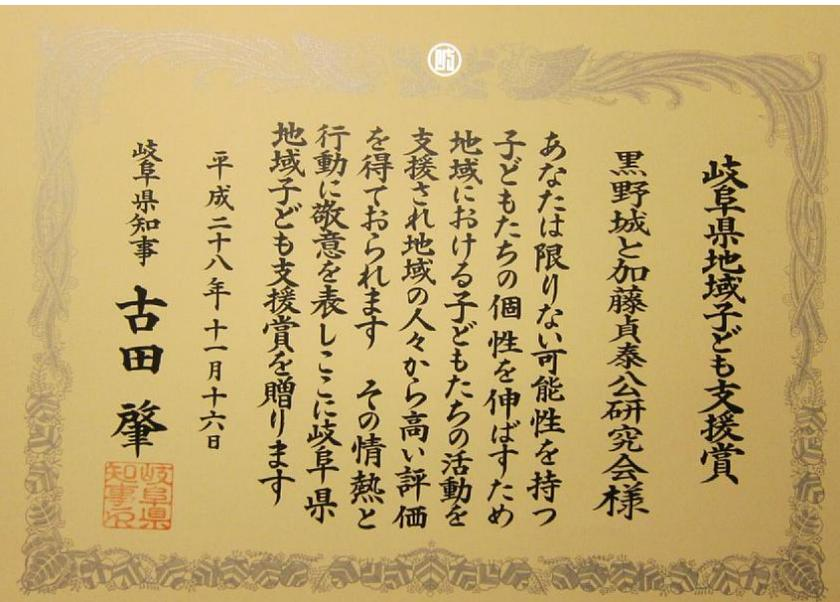 岐阜県地域子ども支援賞
黒野城と加藤貞泰公研究会様
あなたは限りない可能性を持つ
子どもたちの個性を伸ばすため
地域における子どもたちの活動を
支援され地域の人々から高い評価
を得ておられます その情熱と
行動に敬意を表しここに岐阜県
地域子ども支援賞を贈ります
平成二十八年十一月十六日
岐阜県知事 古田 肇
岐阜県
知事之印